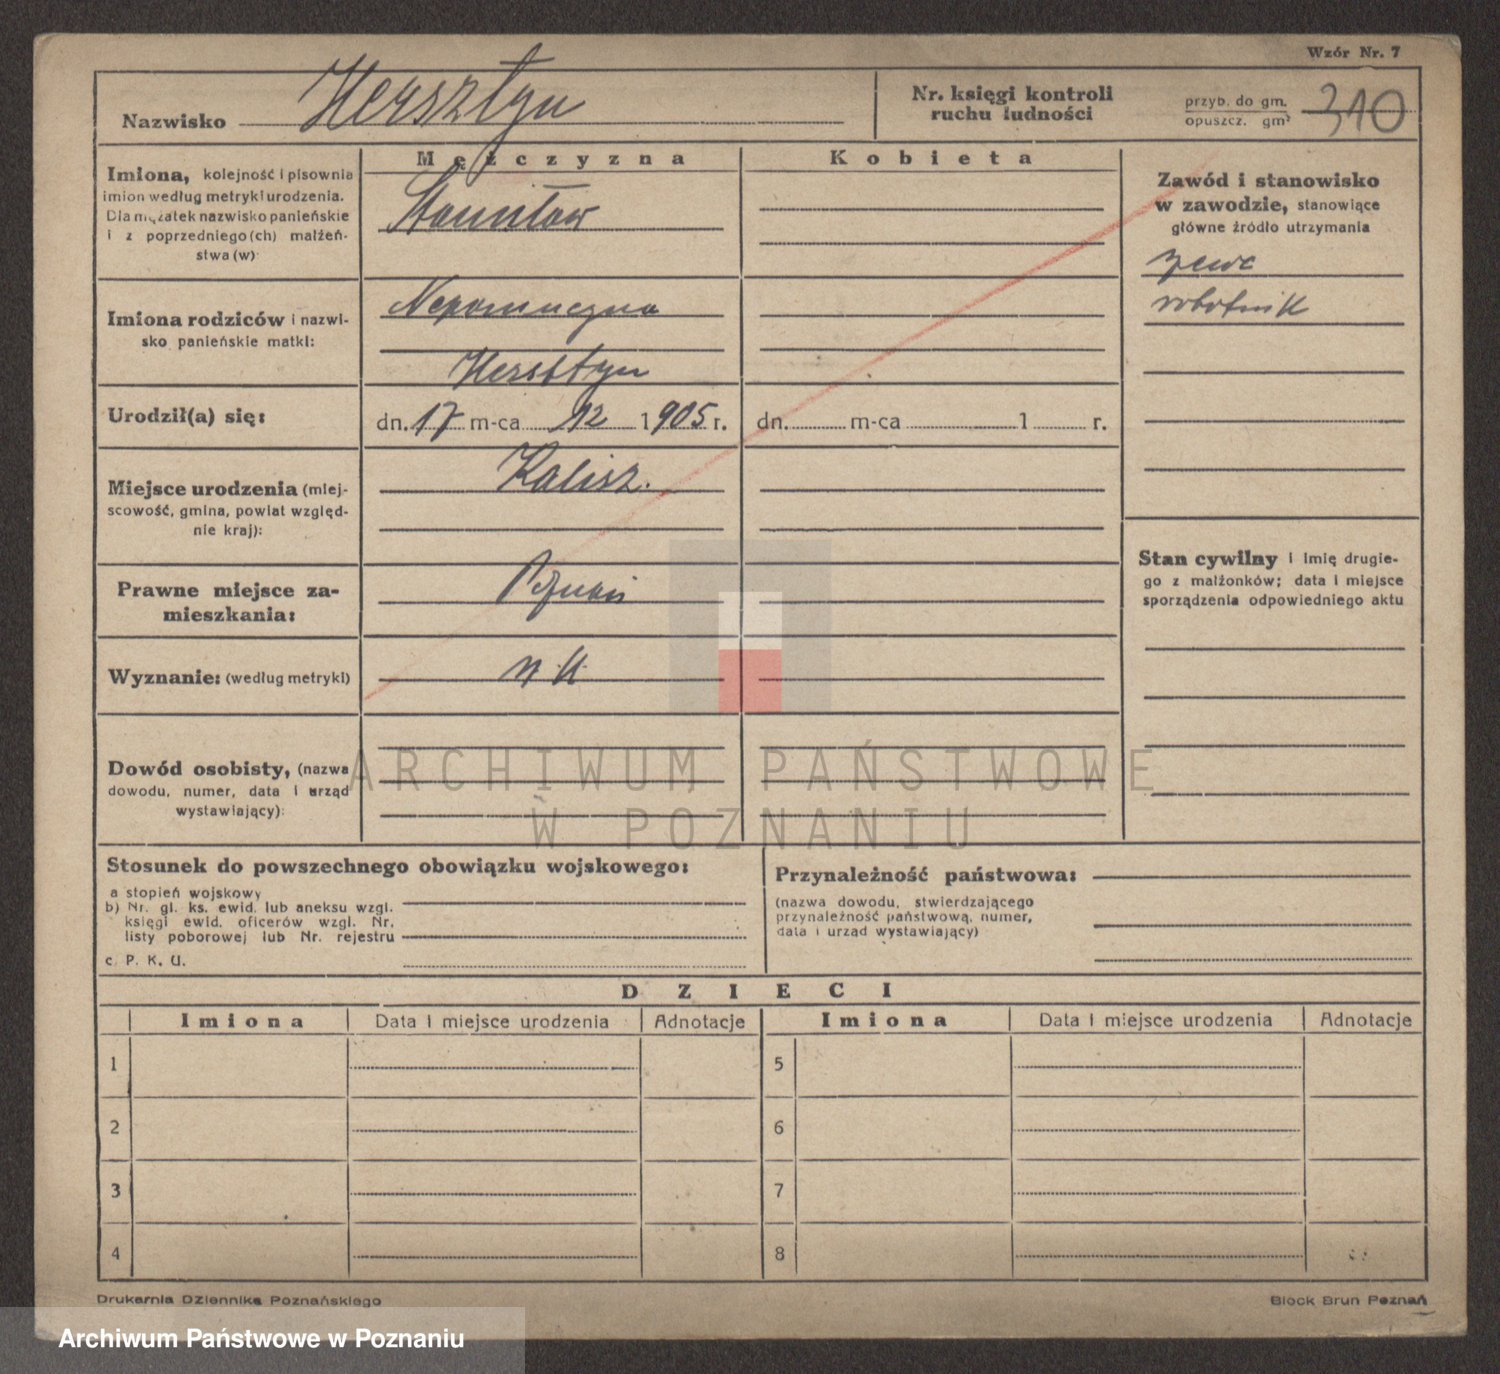 Wzór Nr. 7
Nazwisko Hersztyn
Nr. księgi kontroli
ruchu ludności
przyb. do gm.
opuszcz. gm.
310
Mężczyzna
Kobieta
Imiona, kolejność i pisownia
imion według metryki urodzenia.
Dla mężatek nazwisko panieńskie
i z poprzedniego(ch) małżeń-
stwa(w):
Stanisław
Zawód i stanowisko
w zawodzie, stanowiące
główne źródło utrzymania
robotnik
Imiona rodziców i nazwi-
sko panieńskie matki:
Nepomucyna
Hersztyn
Urodził(a) się:
dn. 17 m-ca 12 1905 r.
dn. m-ca 1 r.
Miejsce urodzenia (miej-
scowość, gmina, powiat względ-
nie kraj):
Kalisz.
Prawne miejsce za-
mieszkania:
Poznań
Stan cywilny i imię drugie-
go z małżonków; data i miejsce
sporządzenia odpowiedniego aktu
Wyznanie: (według metryki)
Dowód osobisty, (nazwa
dowodu, numer, data i urząd
wystawiający):
ARCHIWUM PAŃSTWOWE
W POZNANIU
Stosunek do powszechnego obowiązku wojskowego:
a stopień wojskowy
b) Nr. gl. ks. ewid. lub aneksu wzgl.
księgi ewid. oficerów wzgl. Nr.
listy poborowej lub Nr. rejestru
c. P. K. U.
Przynależność państwowa:
(nazwa dowodu, stwierdzającego
przynależność państwową, numer,
data i urząd wystawiający)
DZIECI
Imiona Data i miejsce urodzenia Adnotacje Imiona Data i miejsce urodzenia Adnotacje
1 5
2 6
3 7
4 8
Drukarnia Dziennika Poznańskiego
Block Brun Poznań
Archiwum Państwowe w Poznaniu